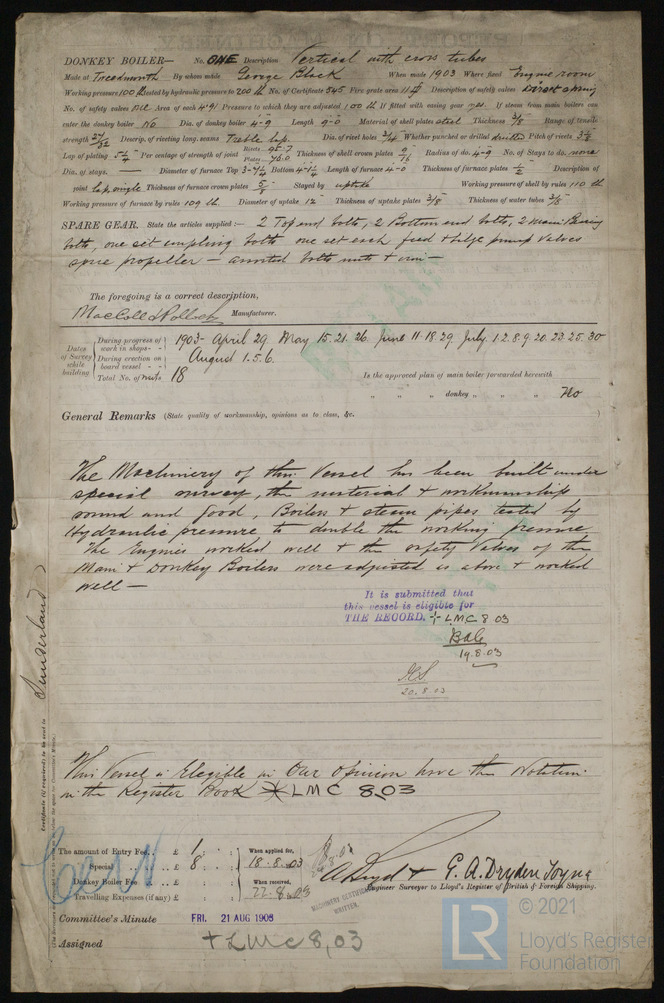 DONKEY BOILER— No. ONE Description Vertical with cross tubes
Made at By whom made George Black When made 1903 Where fixed Engine room
Working pressure 100 lb tested by hydraulic pressure to 200 lb No. of Certificate 545 Fire grate area 11 Description of safety valves Direct spring
No. of safety valves Area of each 4.91 Pressure to which they are adjusted 100 lb If fitted with easing gear yes. If steam from main boilers can
enter the donkey boiler No Dia. of donkey boiler 4-9 Length 9-0 Material of shell plates steel Thickness 3/8 Range of tensile
strength 27/32 Descrip. of riveting long. seams Treble lap. Dia. of rivet holes 3/4 Whether punched or drilled drilled Pitch of rivets
Lap of plating Per centage of strength of joint Rivets 95.7 Plates 76.0 Thickness of shell crown plates 9/16 Radius of do. 4-9 No. of Stays to do. none
Dia. of stays. — Diameter of furnace Top Bottom Length of furnace 4-0 Thickness of furnace plates 1/2 Description of
joint lap, single Thickness of furnace crown plates 5/8 Stayed by uptake Working pressure of shell by rules 110 lb
Working pressure of furnace by rules 109 lb Diameter of uptake 12" Thickness of uptake plates 3/8 Thickness of water tubes 3/8
SPARE GEAR. State the articles supplied:— 2 Top end bolts, 2 Bottom end bolts, 2 Main Bearing
bolts, one set coupling bolts one set each feed & bilge pump valves
spare propeller — assorted bolts nuts & iron —
The foregoing is a correct description,
MacColl & Pollock Manufacturer.
Dates of Survey while building
During progress of work in shops - - 1903 - April 29 May 15. 21. 26 June 11. 18. 29 July. 1. 2. 8. 9. 20. 23. 25. 30
During erection on board vessel - - - August 1. 5. 6.
Total No. of visits 18
Is the approved plan of main boiler forwarded herewith
" " " donkey " " " No
General Remarks (State quality of workmanship, opinions as to class, &c. )
The Machinery of this Vessel has been built under
special survey, the material & workmanship
sound and good, Boilers & steam pipes tested by
Hydraulic pressure to double the working pressure
The Engines worked well & the safety Valves of the
Main & Donkey Boilers were adjusted as above & worked
well —
It is submitted that
this vessel is eligible for
THE RECORD. + LMC 8 03
19.8.03
20.8.03
This Vessel is Eligible in Our Opinion have the Notation
in the Register Book + LMC 8,03
Certificate (if required) to be sent to Sunderland
The amount of Entry Fee.. £ 1 : :
Special .. .. £ 8 : :
Donkey Boiler Fee .. .. £ : :
Travelling Expenses (if any) £ : :
When applied for, 18.8.03
When received, 22.8.03
MACHINERY CERTIFICATE
WRITTEN.
G. A. Dryden Toyne
Engineer Surveyor to Lloyd's Register of British & Foreign Shipping.
Committee's Minute FRI. 21 AUG 1903
Assigned + LMC 8,03
LR
© 2021
Lloyd's Register
Foundation